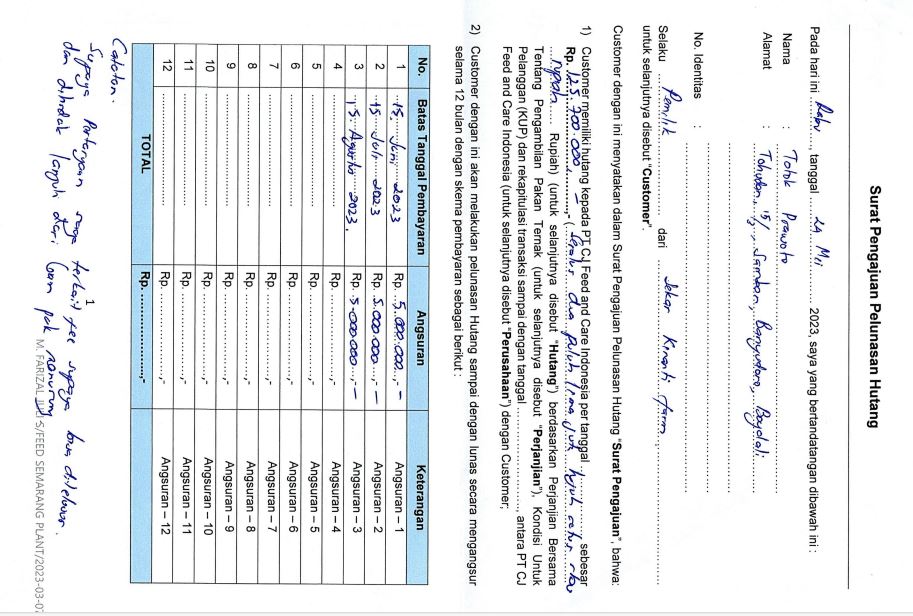 Surat Pengajuan Pelunasan Hutang
Pada hari ini Rabu, tanggal 24 Mei 2023, saya yang bertandatangan dibawah ini :
Nama : Totok Prawoto
Alamat : Tohudan, 15/3, Sambon, Banyudono, Boyolali
No. Identitas :
Selaku Pemilik dari Sekar Kinanti farm
untuk selanjutnya disebut "Customer".
Customer dengan ini menyatakan dalam Surat Pengajuan Pelunasan Hutang "Surat Pengajuan", bahwa:
1) Customer memiliki hutang kepada PT CJ Feed and Care Indonesia per tanggal .................. sebesar
Rp. 125.700.000,-,- ( seratus dua puluh lima jut tujuh ratus ribu
rupiah Rupiah) (untuk selanjutnya disebut "Hutang") berdasarkan Perjanjian Bersama
Tentang Pengambilan Pakan Ternak (untuk selanjutnya disebut "Perjanjian"), Kondisi Untuk
Pelanggan (KUP) dan rekapitulasi transaksi sampai dengan tanggal ........................, antara PT CJ
Feed and Care Indonesia (untuk selanjutnya disebut "Perusahaan") dengan Customer;
2) Customer dengan ini akan melakukan pelunasan Hutang sampai dengan lunas secara mengangsur
selama 12 bulan dengan skema pembayaran sebagai berikut :
No. Batas Tanggal Pembayaran Angsuran Keterangan
1 15. Juni 2023 Rp. 5.000.000,- – Angsuran – 1
2 15 Juli 2023 Rp. 5.000.000,- – Angsuran – 2
3 15. Agustus 2023. Rp. 5.000.000,- – Angsuran – 3
4 Rp. ......................,- Angsuran – 4
5 Rp. ......................,- Angsuran – 5
6 Rp. ......................,- Angsuran – 6
7 Rp. ......................,- Angsuran – 7
8 Rp. ......................,- Angsuran – 8
9 Rp. ......................,- Angsuran – 9
10 Rp. ......................,- Angsuran – 10
11 Rp. ......................,- Angsuran – 11
12 Rp. ......................,- Angsuran – 12
TOTAL Rp. ......................,-
Catatan.
1
Supaya Pertanyaan saya terkait fee supaya bisa
dan lanjuti dari pak
M. FARIZAL JULI S/FEED SEMARANG PLANT/2023-03-07